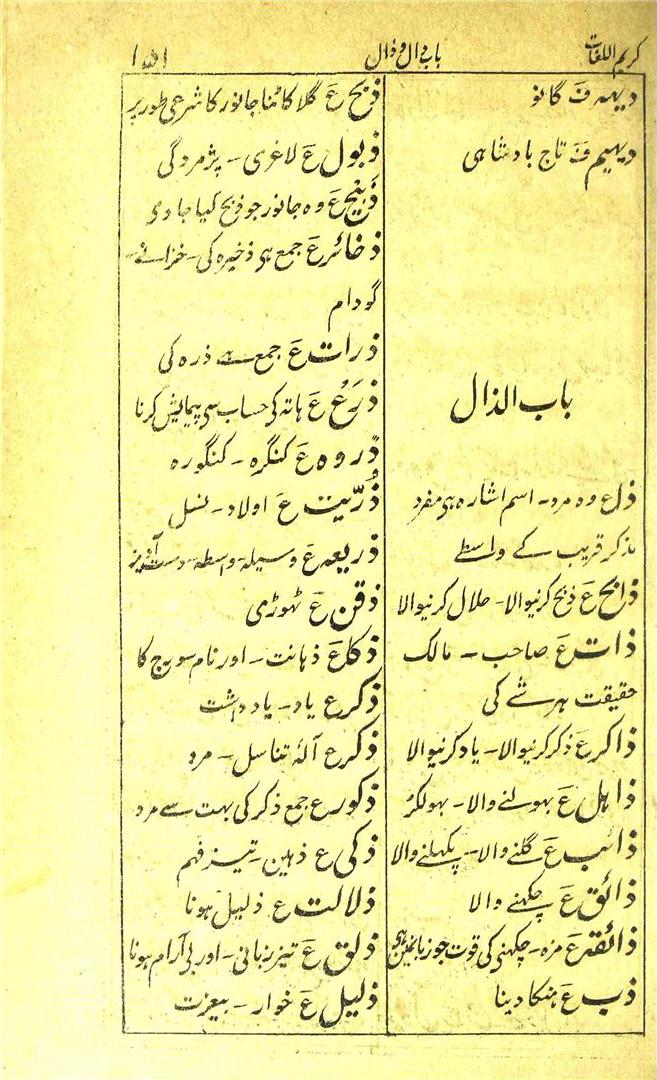 کریم اللغات
باب دال و ذال
۱۵۱
دیہہ ف گانو
دیہیم ف تاج بادشاہی
باب الذال
ذا ع وہ مرد۔ اسم اشارہ ہی مفرد
مذکر قریب کے واسطے
ذابح ع ذبح کرنیوالا۔ حلال کرنیوالا
ذات ع صاحب۔ مالک
حقیقت ہر شے کی
ذاکر ع ذکر کرنیوالا۔ یاد کرنیوالا
ذاہل ع بہولنے والا۔ بہولکڑ
ذائب ع گلنے والا۔ پگہلنے والا
ذائق ع چکہنے والا
ذائقہ ع مزہ۔ چکہنی کی قوت جو زبانمیں ہی
ذب ع ہنکا دینا
ذبح ع گلا کاٹنا جانور کا شرعی طور پر
ذبول ع لاغری۔ پژمردگی
ذبیح ع وہ جانور جو ذبح کیا جاوی
ذخائر ع جمع ہی ذخیرہ کی۔ خزانے۔
گودام
ذرات ع جمع ہے ذرہ کی
ذرع ع ہاتہ کی حساب سی پیمایش کرنا
ذروہ ع کنگرہ۔ کنگورہ
ذُرّیت ع اولاد۔ نسل
ذریعہ ع وسیلہ۔ واسطہ۔ دست آویز
ذقن ع ٹہوڑی
ذکا ع ذہانت۔ اور نام سورج کا
ذکر ع یاد۔ یادداشت
ذکر ع آلۂ تناسل۔ مرد
ذکور ع جمع ذکر کی بہت سے مرد
ذکی ع ذہین۔ تیز فہم
ذلالت ع ذلیل ہونا
ذلق ع تیز زبانی۔ اور بی آرام ہونا
ذلیل ع خوار۔ بیعزت